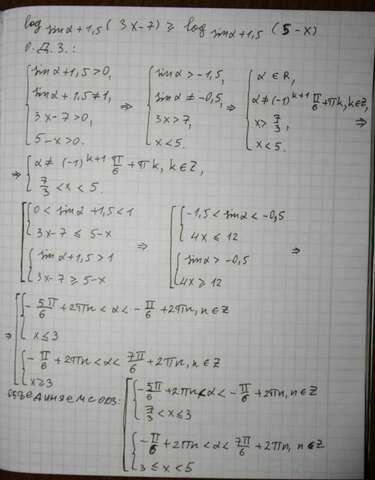 log sinα+1,5 (3x-7) ≥ log sinα+1,5 (5-x)
О.Д.З.:
{ sinα+1,5>0, sinα+1,5≠1, 3x-7>0, 5-x>0. ⇒ { sinα>-1,5, sinα≠-0,5, 3x>7, x<5. ⇒ { α∈R, α≠(-1)^{k+1} π/6+πk, k∈Z, x>7/3, x<5. ⇒
⇒ { α≠(-1)^{k+1} π/6+πk, k∈Z, 7/3<x<5.
[ { 0<sinα+1,5<1 3x-7≤5-x { sinα+1,5>1 3x-7≥5-x ⇒ [ { -1,5<sinα<-0,5 4x≤12 { sinα>-0,5 4x≥12 ⇒
⇒ [ { -5π/6+2πn<α<-π/6+2πn, n∈Z x≤3 { -π/6+2πn<α<7π/6+2πn, n∈Z x≥3
объединяем с ОДЗ: [ { -5π/6+2πn<α<-π/6+2πn, n∈Z 7/3<x≤3 { -π/6+2πn<α<7π/6+2πn, n∈Z 3≤x<5